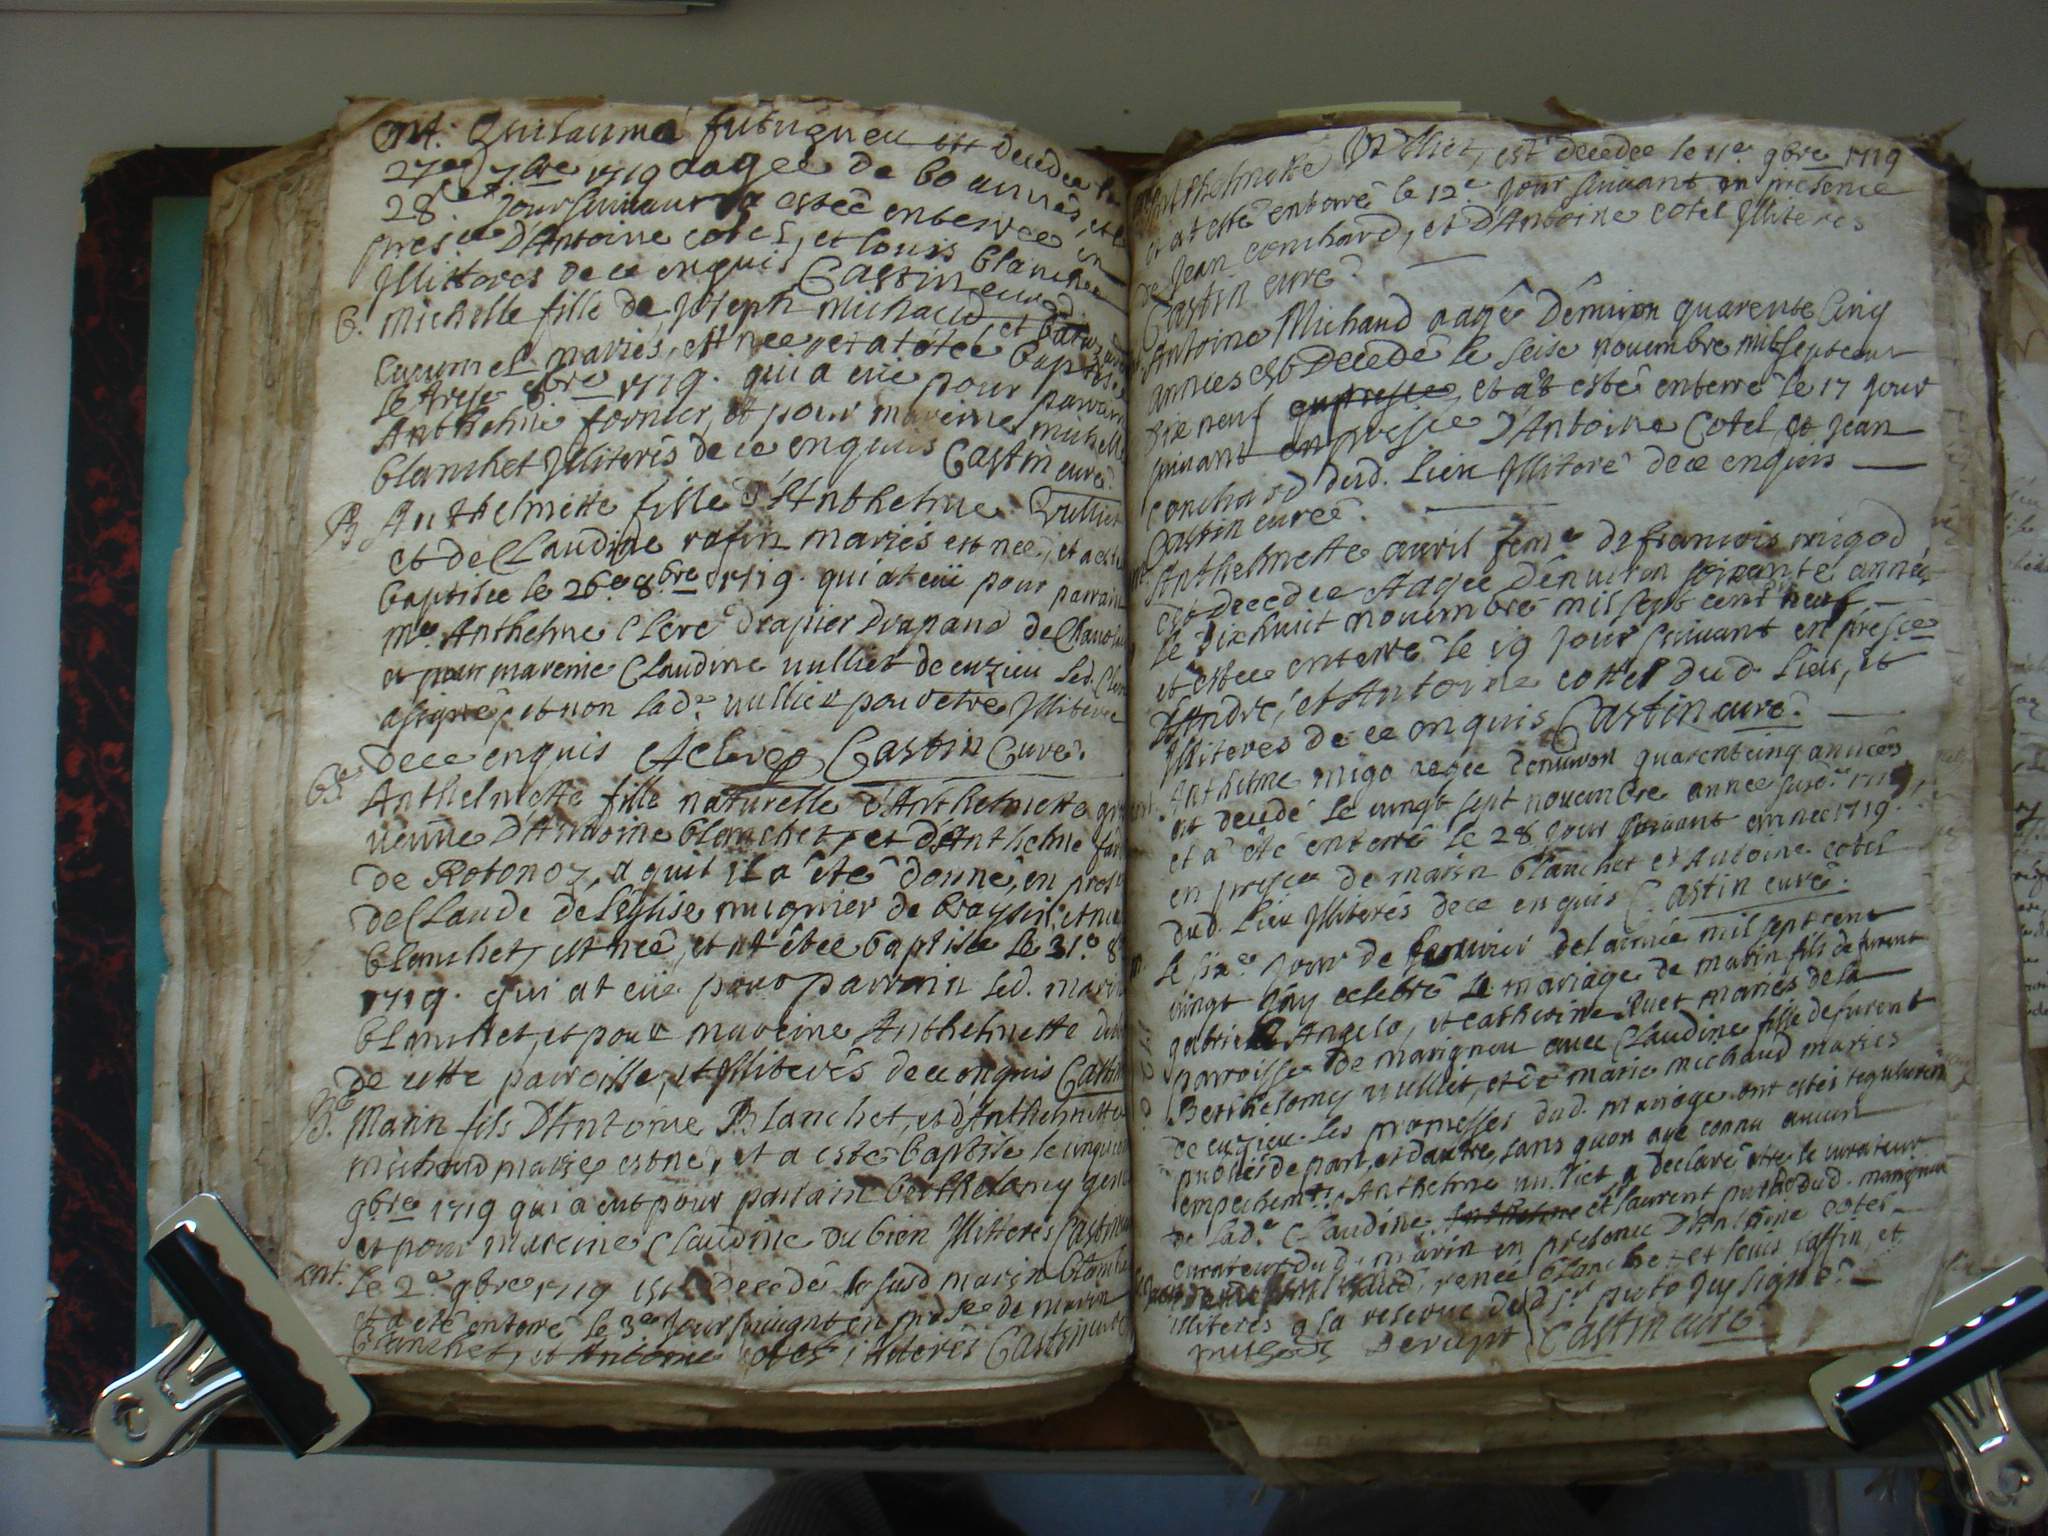 ent. Guilaume est decedee le
27e 7bre 1719 aagee de 60 annees, et le
28e jour suivant a estée enterree en
presce D'Antoine cotel, et louis blanchet
Illitteres de ce enquis Castin curé
B. Michelle fille de Joseph michaud, et
mariés, est nee, et at étée baptisee
le 8bre 1719. qui a eüe pour parrain
Anthelme fornier, et pour mareine michelle
blanchet Illiterés de ce enquis Castin curé.
B. Anthelmette fille d'Anthelme Vulliet
et de Claudine rafin mariés est nee, et a esté
baptisée le 26e 8bre 1719. qui at eüe pour parrain
Me. Anthelme Clerc drapier drapand de
et pour mareine Claudine vulliet de cuzieu led. Clerc
a signé, et non lad.e vulliet pour etre Illiteree
de ce enquis AClerc Castin Curé.
Anthelmette fille naturelle d'Anthelmette
veuve D'Antoine blanchet, et d'Anthelme
de Rotonoz, a qui il a été donné, en
de Claude de L'eglise de
blanchet, est neé, et at étée baptisée le 31e 8bre
1719. qui at eüe pour parrain led. marin
blanchet, et pour mareine Anthelmette
de cette parroisse, et Illiterés de ce enquis Castin
B. Marin fils D'Antoine Blanchet, et d'Anthelmette
michaud mariés est né, et a esté baptisé le cinquieme
9bre 1719 qui a eut pour parrain berthelamy
et pour mareine Claudine du bien Illitterés Castin
ent. Le 2e 9bre 1719 est decedé le susd marin blanchet
et a été enterré le 3e jour suivant en presce de marin
blanchet, et Antoine cotel illiterés Castin curé
Anthelmette Vulliet, est decedee le 11e 9bre 1719
et at esté enterré le 12e jour suivant en presence
de Jean conchard, et D'Antoine cotel Illiteres
Castin curé
Antoine Michaud aagé D'environ quarente Cinq
annees est Decedé le seise novembre mil sept cent
dix neuf, et at esté enterré le 17 jour
suivant en presce D'Antoine Cotel, et Jean
conchard dud. Lieu Illiteré de ce enquis
Castin curé.
Anthelmette auril feme de francois migod
est decedee Aagee D'environ soixante années
le dixhuit novembre mil sept cent neuf
et estee enterré le 19 jour suivant en presce
D'André, et Antoine cottel dud. Lieu, et
Illiteres de ce enquis Castin curé.
Anthelme migo aagée D'environ quarente cinq années
est decedé le vingt sept novembre année susd.e 1719,
et a été enterré le 28 jour suivant année 1719.
en presce de marin blanchet et Antoine cotel
dud. Lieu Illiterés de ce enquis Castin curé.
Le sixe jour de de l'année mil sept cent
vingt j'ay celebré le mariage de marin fils de furent
gabriel Angelo, et catherine Ruet mariés de la
parroisse de marignieu avec Claudine fille de furent
Berthelomy vulliet, et de marie michaud mariés
de cuzieu. Les promesses dud. mariage ont estés regulierement
publiés de part, et d'autre, sans qu'on aye connu aucun
empechemt. Anthelme vulliet a declaré etre le curateur
de lad.e Claudine et laurent dud. marignieu
curateur dud. marin en presence D'Antoine cotel
renée blanchet et louis raffin, et
illiteres a la reserve dud sr. j'ay signé.
Castin curé